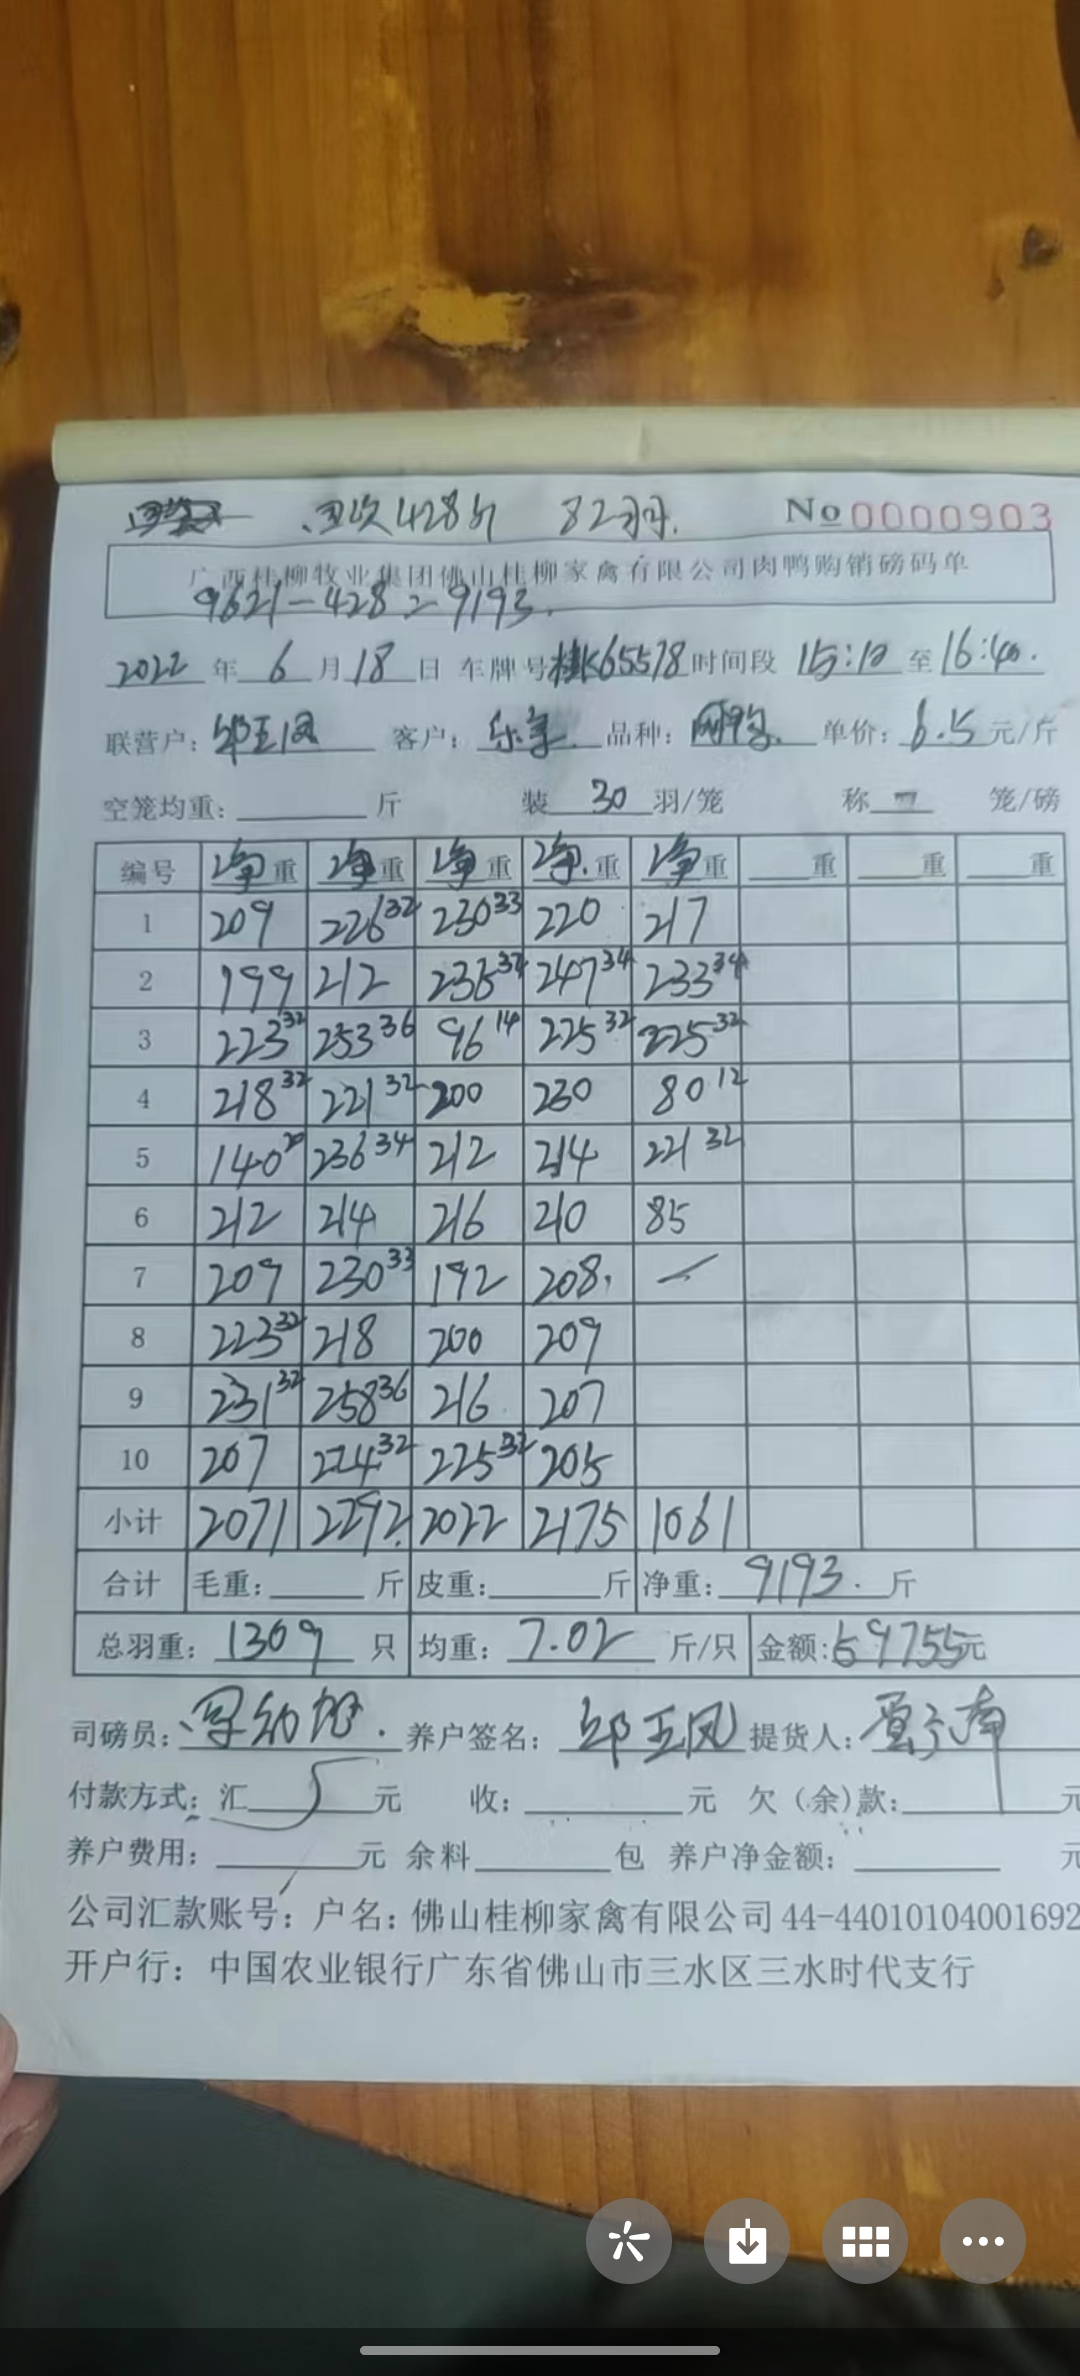 回收428斤 82羽. No 0000903
广西桂柳牧业集团佛山桂柳家禽有限公司肉鸭购销磅码单
9621-428=9193.
2022 年 6 月 18 日 车牌号 桂K65578 时间段 15:10 至 16:40.
联营户: 邱玉凤 客户: 品种: 单价: 6.5 元/斤
空笼均重: 斤 装 30 羽/笼 称 笼/磅
编号 净重 净重 净重 净.重 净重 重 重 重
1 209 226 32 230 33 220 217
2 199 212 235 247 34 233 34
3 223 32 253 36 96 14 225 32 225 32
4 218 32 221 32 200 230 80 12
5 140 20 236 34 212 214 221 32
6 212 214 216 210 85
7 209 230 33 192 208.
8 223 32 218 200 209
9 231 32 258 36 216 207
10 207 224 32 225 32 205
小计 2071 2292. 2022 2175 1061
合计 毛重: 斤 皮重: 斤 净重: 9193. 斤
总羽重: 1309 只 均重: 7.02 斤/只 金额: 59755元
司磅员: 养户签名: 邱玉凤 提货人:
付款方式: 汇 元 收: 元 欠(余)款: 元
养户费用: 元 余料 包 养户净金额: 元
公司汇款账号: 户名: 佛山桂柳家禽有限公司 44-44010104001692
开户行: 中国农业银行广东省佛山市三水区三水时代支行